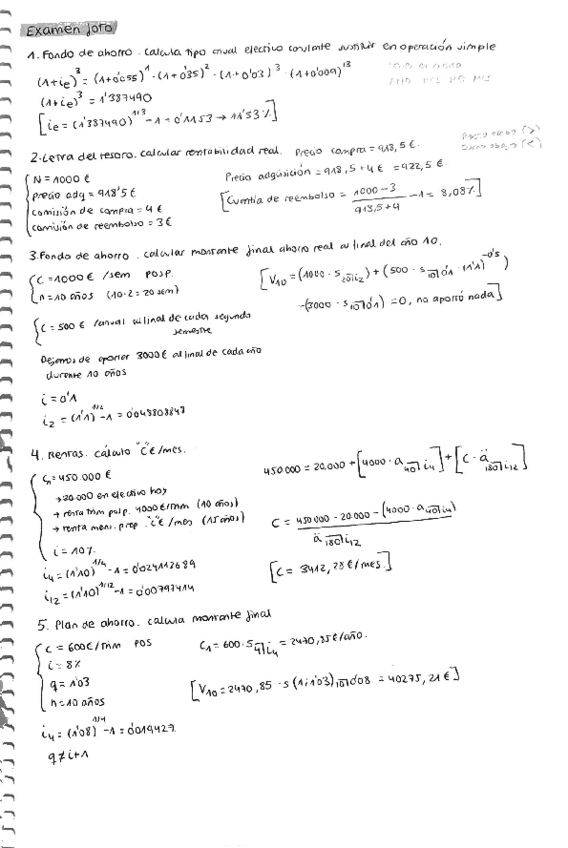 Examen foro
1. Fondo de ahorro. calcula tipo anual efectivo constante sustituir en operación simple
(1+ie)^3 = (1+0'055)^1 · (1+0'035)^2 · (1+0'03)^3 · (1+0'009)^13
(1+ie)^3 = 1'387490
[ie = (1'387490)^1/3 - 1 = 0'1153 → 11'53%]
2. Letra del tesoro. calcular rentabilidad real. Precio compra = 918,5€.
N = 1000€
precio adq = 918'5€
comisión de compra = 4€
comisión de reembolso = 3€
Precio adquisición = 918,5 + 4€ = 922,5€.
[Cuantía de reembolso = (1000 - 3)/(918,5+4) - 1 = 8,08%]
3. Fondo de ahorro. calcular montante final ahorro real al final del año 10.
C = 1000€ /sem posp.
n = 10 años (10·2 = 20 sem)
C = 500€ /anual al final de cada segundo semestre
Dejamos de aportar 3000€ al final de cada año
durante 10 años
i = 0'1
i2 = (1'1)^1/2 - 1 = 0'048808847
[V10 = (1000 · s20┐i2) + (500 · s10┐0'1 · (1'1)^-0's)
-(3000 · s10┐0'1) = 0, no aportó nada]
4. Rentas. cálculo "C"€/mes.
Cn = 450.000€
→ 20.000 en efectivo hoy
→ renta trim pusp. 4000€/trim (10 años)
→ renta mens. prep. "C"€/mes (15 años)
i = 10%
i4 = (1'10)^1/4 - 1 = 0'024113689
i12 = (1'10)^1/12 - 1 = 0'00797414
450000 = 20.000 + [4000 · a40┐i4] + [C · ä180┐i12]
C = (450000 - 20000 - (4000 · a40┐i4))/ä180┐i12
[C = 3412,28€/mes]
5. Plan de ahorro. calcula montante final
C = 600€/trim POS
i = 8%
q = 1'03
n = 10 años
i4 = (1'08)^1/4 - 1 = 0'019427
q ≠ i+1
C1 = 600 · s4┐i4 = 2470,85€/año.
[V10 = 2470,85 · s(1;1'03)10┐0'08 = 40275,21€]